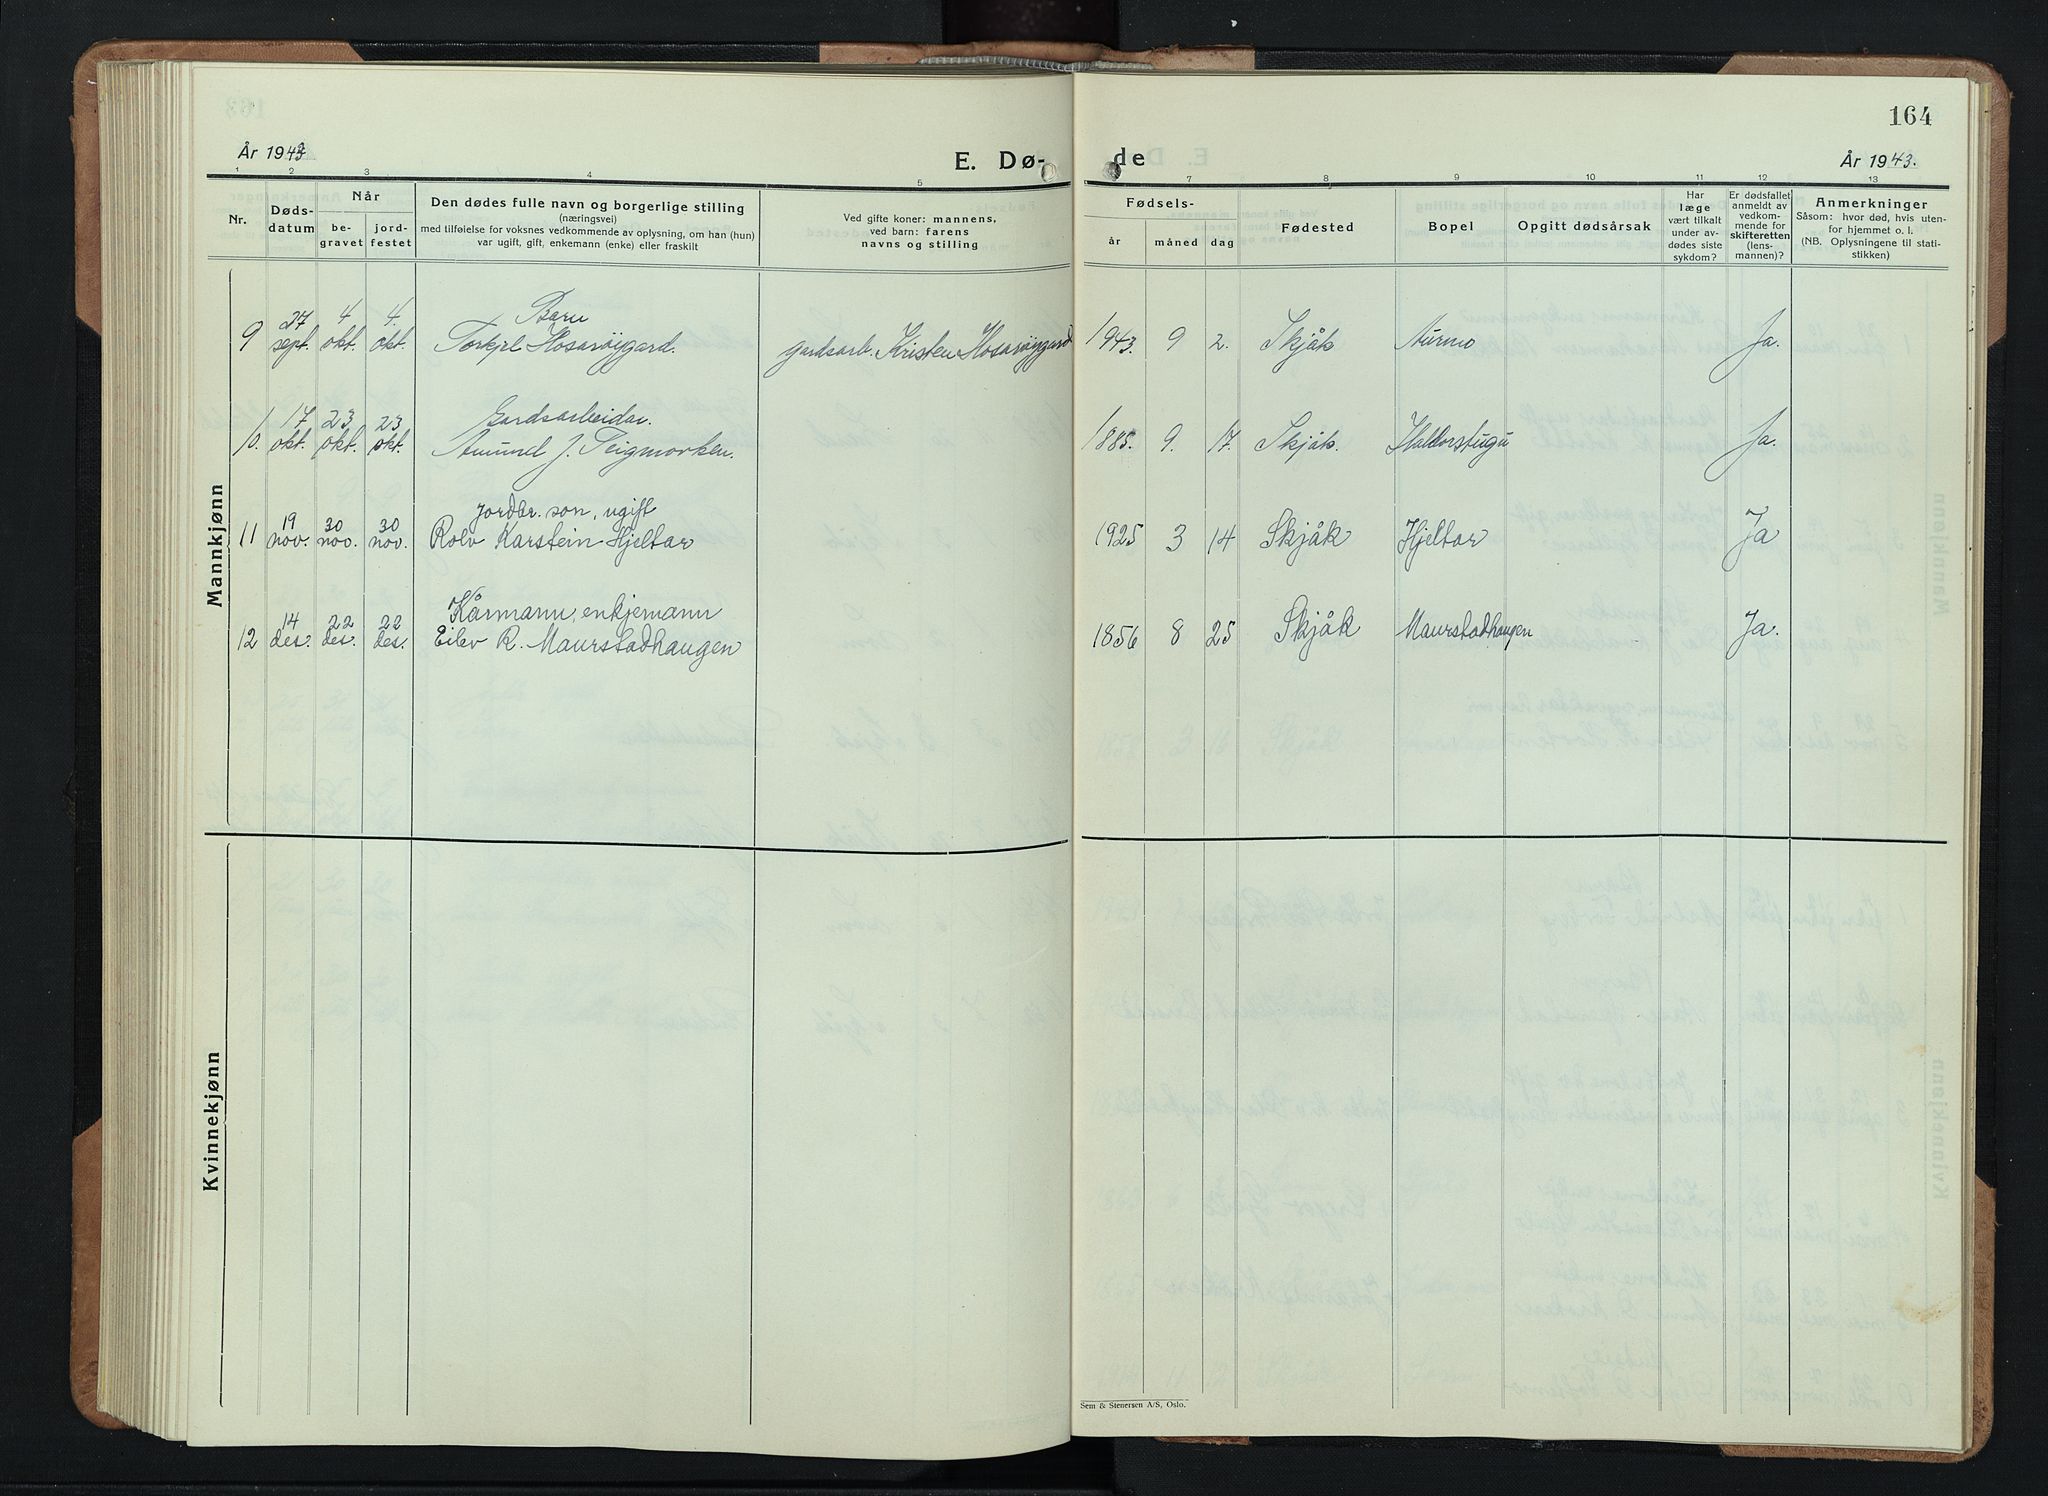 164
År 1943
E. Dø-
de
År 1943.
1 2 3 4 5
7 8 9 10 11 12 13
Nr.
Døds-
datum
Når
be-
gravet
jord-
festet
Den dødes fulle navn og borgerlige stilling
(næringsvei)
med tilføielse for voksnes vedkommende av oplysning, om han (hun)
var ugift, gift, enkemann (enke) eller fraskilt
Ved gifte koner: mannens,
ved barn: farens
navns og stilling
Fødsels-
år måned dag
Fødested
Bopel
Opgitt dødsårsak
Har
læge
vært tilkalt
under av-
dødes siste
sykdom?
Er dødsfallet
anmeldt av
vedkom-
mende for
skifteretten
(lens-
mannen)?
Anmerkninger
Såsom: hvor død, hvis uten-
for hjemmet o. l.
(NB. Oplysningene til stati-
stikken)
Mannkjønn
27 4 4. Barn
9 sept. okt. okt. Torkjel Hosarøygard. gardsarb. Kristen Hosarøygard 1943. 9 2. Skjåk Aurmo Ja.
17 23 23 Gardsarbeidar.
10. okt. okt. okt. Amund J. Teigmorken. 1885. 9. 17. Skjåk. Haldorstugu Ja.
19 30 30 Jordbr. son, ugift
11 nov. nov. nov. Rolv Karstein Hjeltar 1925 3 14 Skjåk Hjeltar Ja
14 22 22 Kårmann, enkjemann
12 des. des. des. Eilev R. Maurstadhaugen 1856 8 25 Skjåk Maurstadhaugen Ja.
Kvinnekjønn
Sem & Stenersen A/S, Oslo.